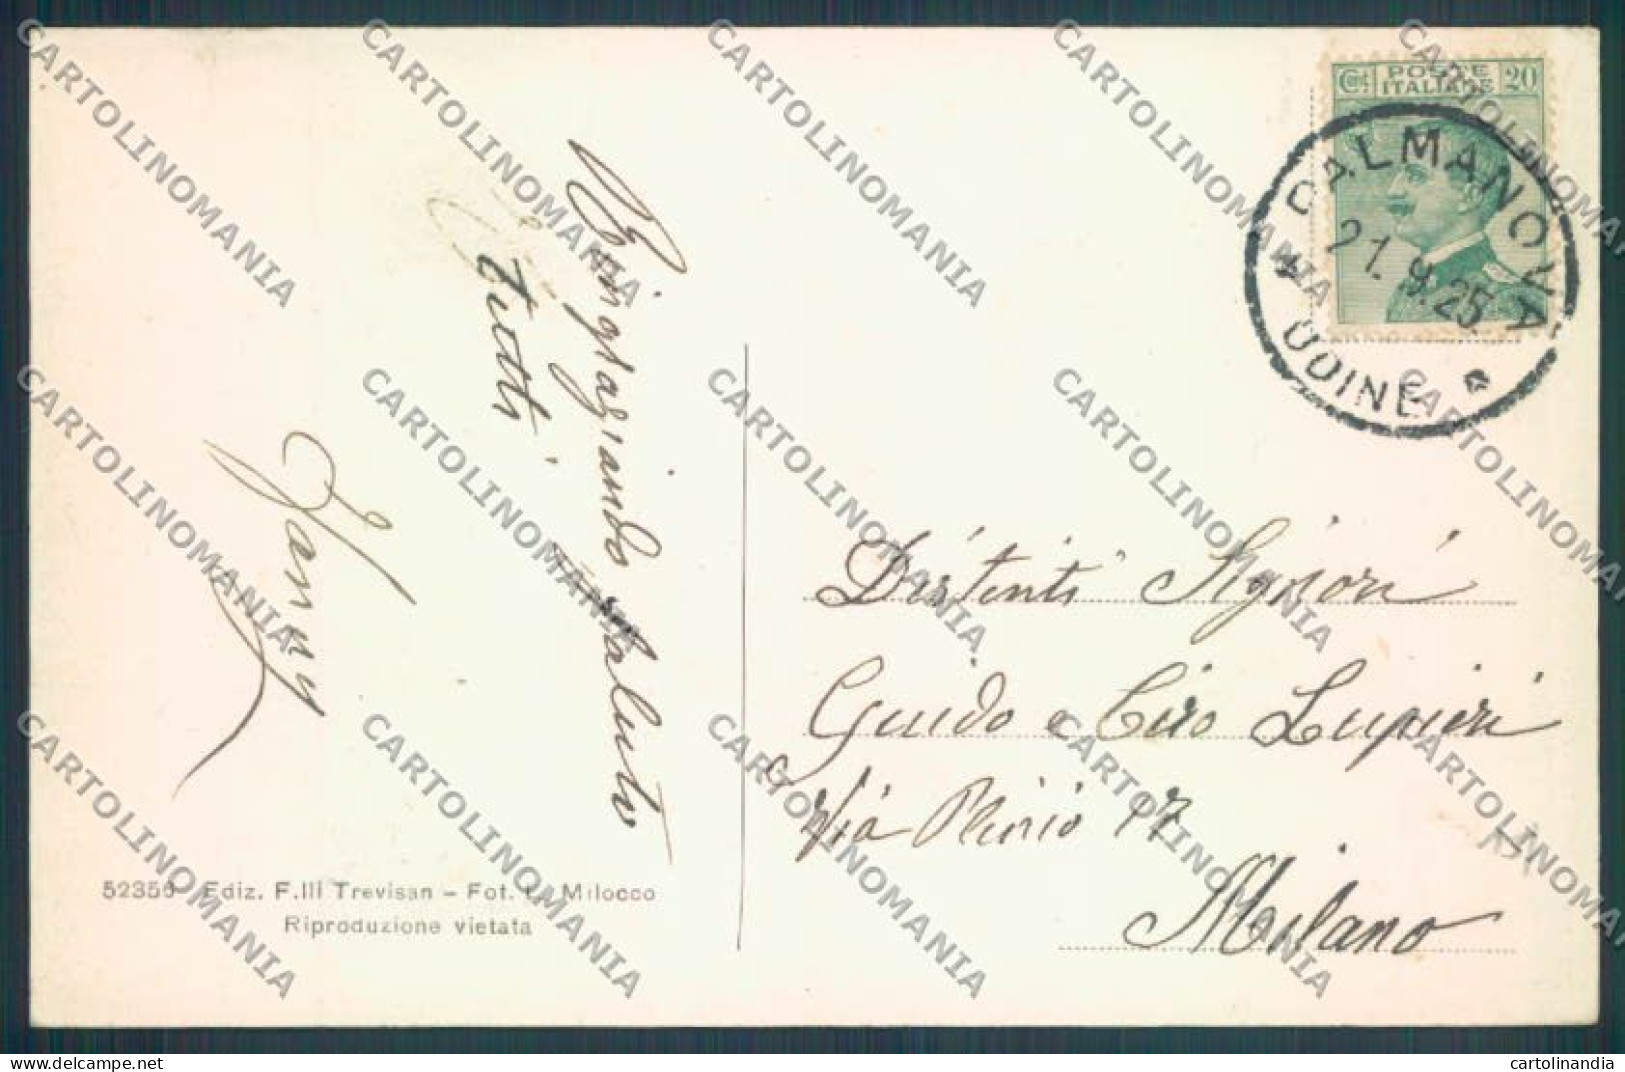 Cent. POSTE ITALIANE 20
PALMANOVA
21.9.25
* UDINE *
Ringraziando saluto
tutti.
Fanny
Distinti Signori
Guido e Ciro Lupieri
Via Plinio 17
Milano
52359 Ediz. F.lli Trevisan - Fot. L. Milocco
Riprodu­zione vietata
CARTOLINOMANIA
delcampe.net
cartolinandia